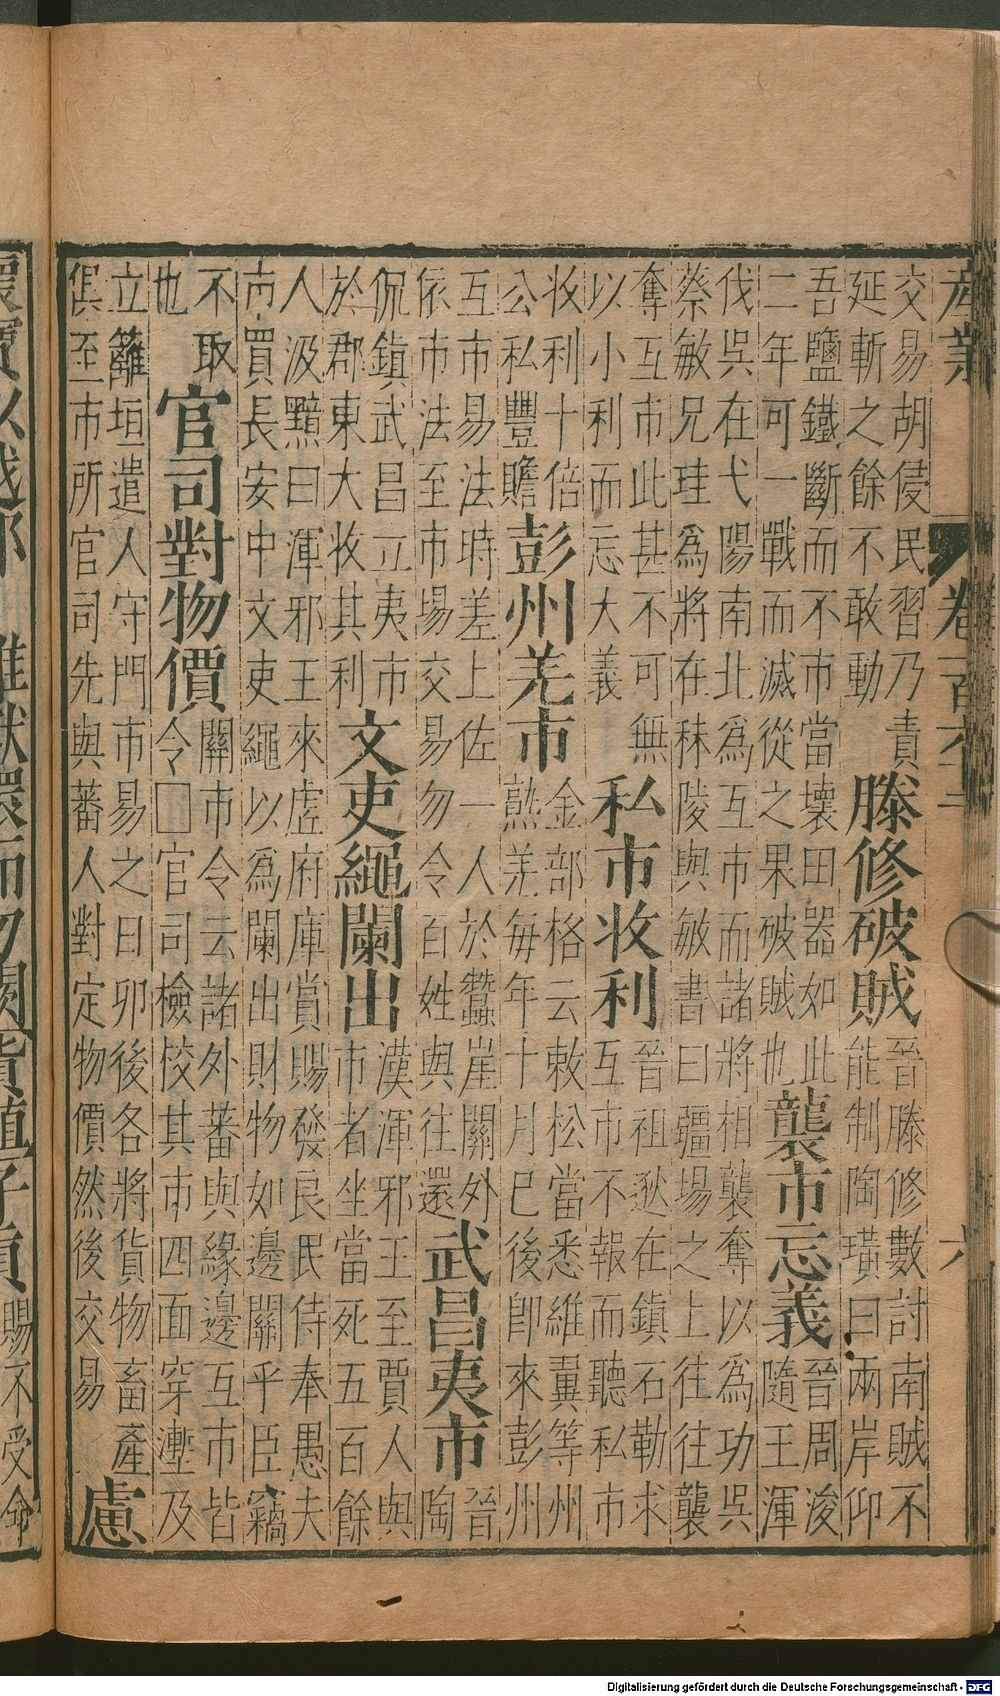 産業
卷一百六十
六
交易胡侵民習乃責
延斬之餘不敢動
滕修破賊
晉滕修數討南賊不
能制陶璜曰兩岸仰
吾鹽鐵斷而不市當壞田器如此
二年可一戰而滅從之果破賊也
襲市忘義
晉周浚
隨王渾
伐吳在弋陽南北爲互市而諸將相襲奪以爲功吳
蔡敏兄珪爲將在秣陵與敏書曰疆場之上往往襲
奪互市此甚不可無
以小利而忘大義
私市收利
晉祖逖在鎮石勒求
互市不報而聽私市
收利十倍
公私豐贍
彭州羌市
金部格云敕松當悉維翼等州
熟羌每年十月已後卽來彭州
互市易法時差上佐一人於蠶崖關外
依市法至市場交易勿令百姓與往還
武昌夷市
晉
陶
侃鎮武昌立夷市
於郡東大收其利
文吏繩闌出
漢渾邪王至賈人與
市者坐當死五百餘
人汲黯曰渾邪王來虛府庫賞賜發良民侍奉愚夫
市買長安中文吏繩以爲闌出財物如邊關乎臣竊
不取
也
官司對物價
關市令云諸外蕃與緣邊互市皆
令□官司檢校其市四面穿塹及
立籬垣遣人守門市易之日卯後各將貨物畜產
俱至市所官司先與蕃人對定物價然後交易
慮
賜不受命
Digitalisierung gefördert durch die Deutsche Forschungsgemeinschaft - DFG